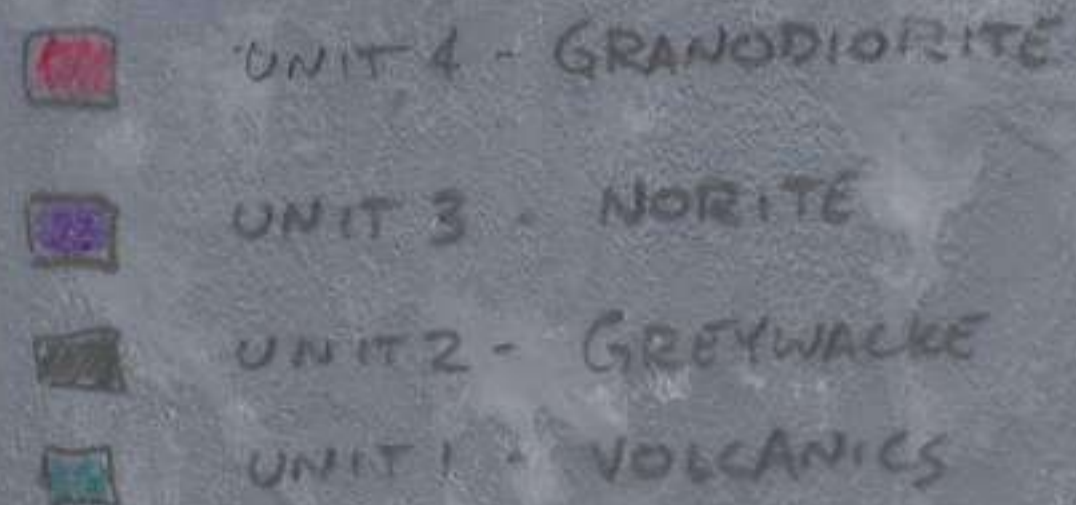 UNIT 4 - GRANODIORITE
UNIT 3 - NORITE
UNIT 2 - GREYWACKE
UNIT 1 - VOLCANICS